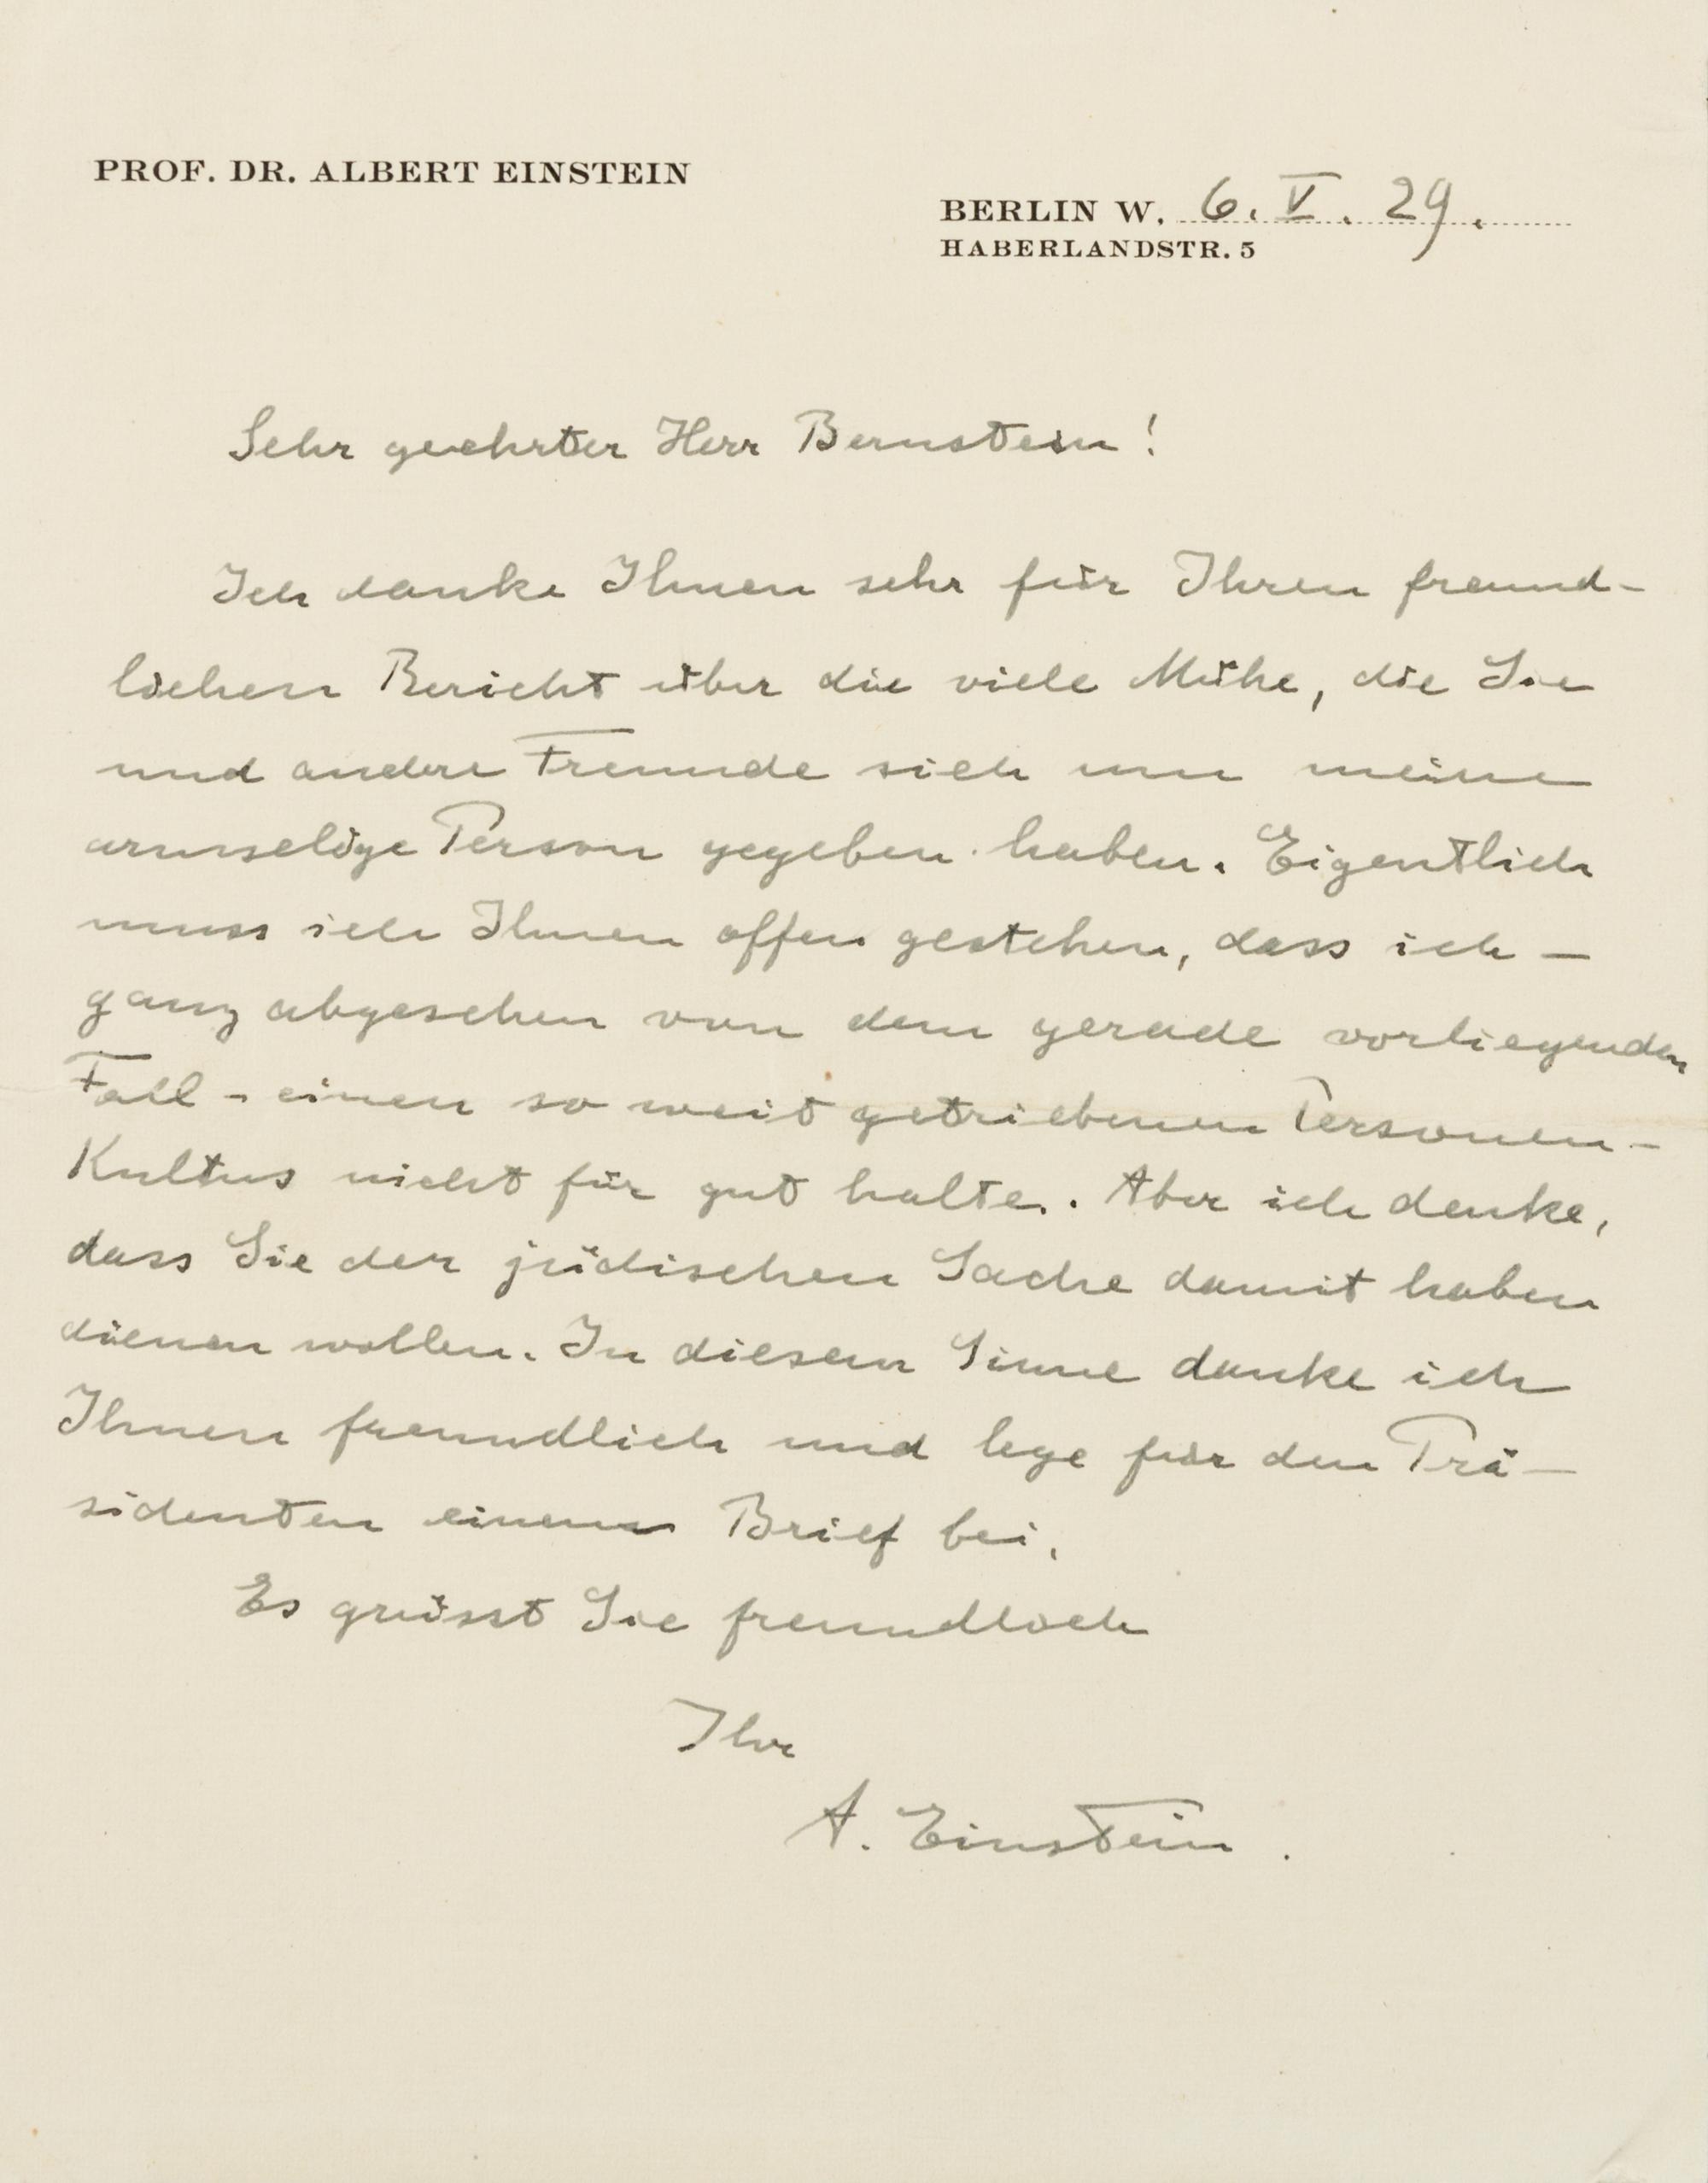 PROF. DR. ALBERT EINSTEIN
BERLIN W. 6. V. 29.
HABERLANDSTR. 5
Sehr geehrter Herr Bernstein!
Ich danke Ihnen sehr für Ihren freund-
lichen Bericht über die viele Mühe, die Sie
und andere Freunde sich um meine
armselige Person gegeben haben. Eigentlich
muss ich Ihnen offen gestehen, dass ich —
ganz abgesehen von dem gerade vorliegenden
Fall - einen so weit getriebenen Personen-
Kultus nicht für gut halte. Aber ich denke,
dass Sie der jüdischen Sache damit haben
dienen wollen. In diesem Sinne danke ich
Ihnen freundlich und lege für den Prä-
sidenten einen Brief bei.
Es grüsst Sie freundlich
Ihr
A. Einstein.